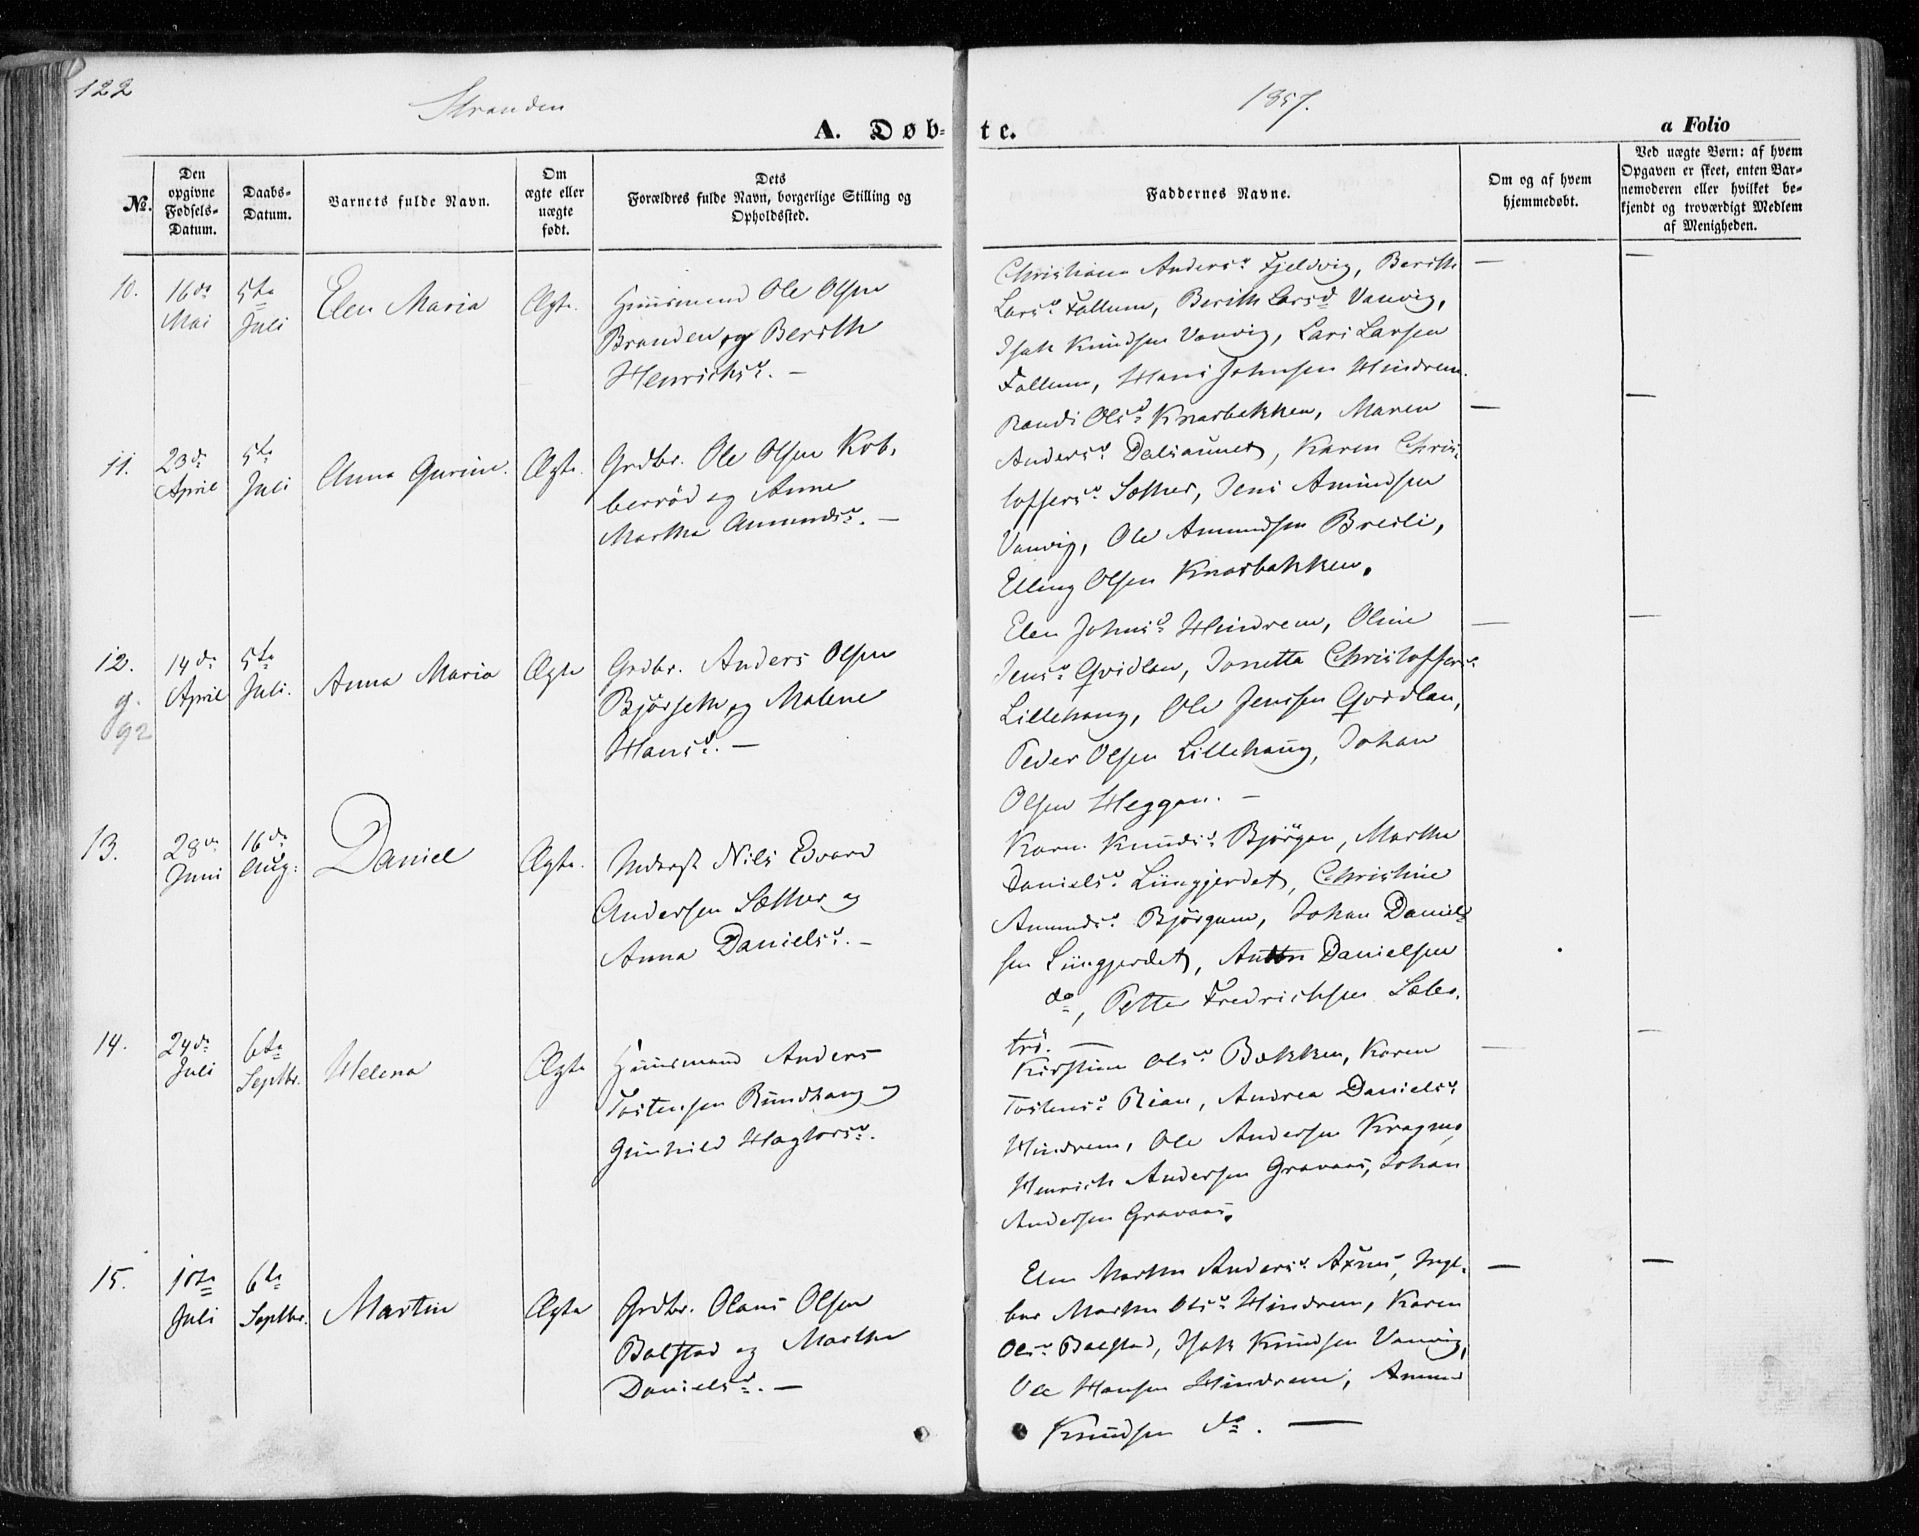 122
Stranden
1857.
A. Døb-
te.
a Folio
№.
Den
opgivne
Fødsels-
Datum.
Daabs-
Datum.
Barnets fulde Navn.
Om
ægte eller
uægte
født.
Dets
Forældres fulde Navn, borgerlige Stilling og
Opholdssted.
Faddernes Navne.
Om og af hvem
hjemmedøbt.
Ved uægte Børn: af hvem
Opgaven er skeet, enten Bar-
nemoderen eller hvilket be-
kjendt og troværdigt Medlem
af Menigheden.
10.
16de
Mai
5te
Juli
Elen Maria
Ægte.
Huusmand Ole Olsen
Branden og Berith
Henrichsd. —
Christiana Andersd. Fjeldvig, Berith
Larsd. Fallum, Berith Larsd. Vanvig,
Isak Knudsen Vanvig, Lars Larsen
Fallum, Hans Johnsen Hindrem.
— —
11.
23de
April
5te
Juli
Anna Gurine.
Ægte.
Grdbr. Ole Olsen Kob-
berrød og Anne
Martha Amundsd. —
Randi Olsd. Knarbakken, Maren
Andersd. Dalsaunet, Karen Chris-
toffersd. Sæther, Jens Amundsen
Vanvig, Ole Amundsen Breili,
Elling Olsen Knarbakken.
— —
12.
g.
92
14de
April
5te
Juli.
Anna Maria
Ægte
Grdbr. Anders Olsen
Bjørseth og Malene
Hansd. —
Elen Johnsd. Hindrem, Oline
Jensd. Qvidlan, Jonetta Christoffersd.
Lillehaug, Ole Jenssen Qvidlan,
Peder Olsen Lillehaug, Johan
Olsen Heggan. —
— —
13.
28de
Juni
16de
Aug:
Daniel
Ægte.
Inderst Nils Edvard
Andersen Sæther og
Anna Danielsd. —
Karn. Knudsd. Bjørgan, Martha
Danielsd. Liungjerdet, Christine
Amundsd. Bjørgum, Johan Daniel-
sen Liungjerdet, Anton Danielsen
do, Petter Fredrichsen Sæbo-
trø. —
14.
24de
Juli
6te
Septbr.
Helena
Ægte
Huusmand Anders
Tostensen Rundhaug og
Gunhild Hagtorsd.
Kirstine Olsd. Bækken, Karen
Tostensd. Rian, Andrea Danielsd.
Hindrem, Ole Andersen Kragmo,
Henrich Andersen Gravaas, Johan
Andersen Gravaas.
— —
15.
10te
Juli
6te
Septbr.
Martin
Ægte
Grdbr. Olaus Olsen
Balstad og Martha
Danielsd. —
Elen Martha Andersd. Axnes, Inge-
bor Martha Olsd. Hindrem, Karen
Olsd. Balstad, Isak Knudsen Vanvig,
Ole Hansen Hindrem, Amund
Knudsen do. —
— —